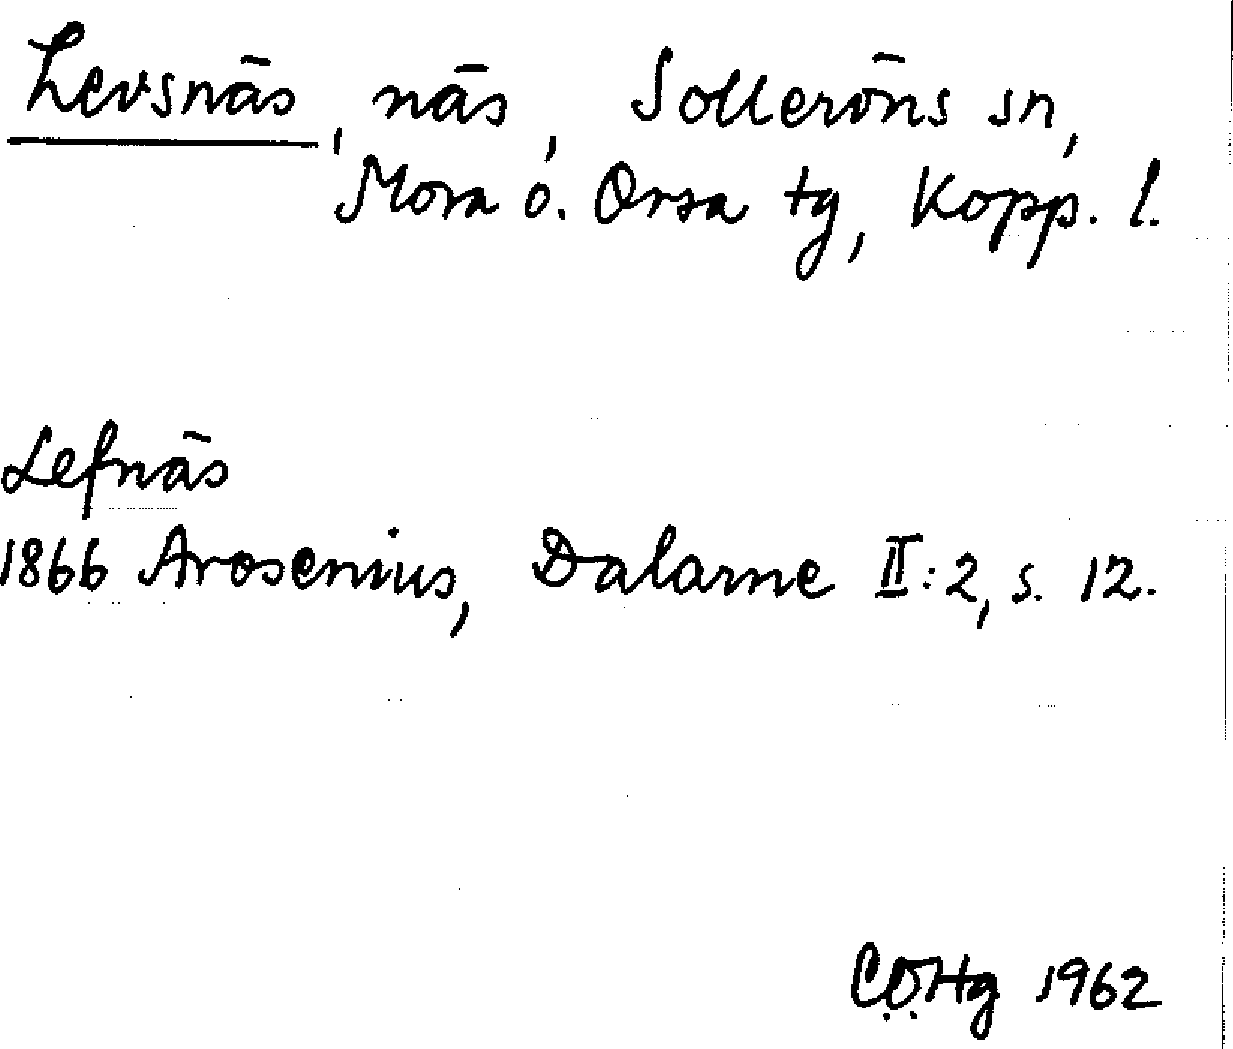 Levsnäs, näs, Solleröns sn,
Mora o. Orsa tg, Kopp. l.
Lefnäs
1866 Arosenius, Dalarne II:2, s. 12.
CÖHg 1962